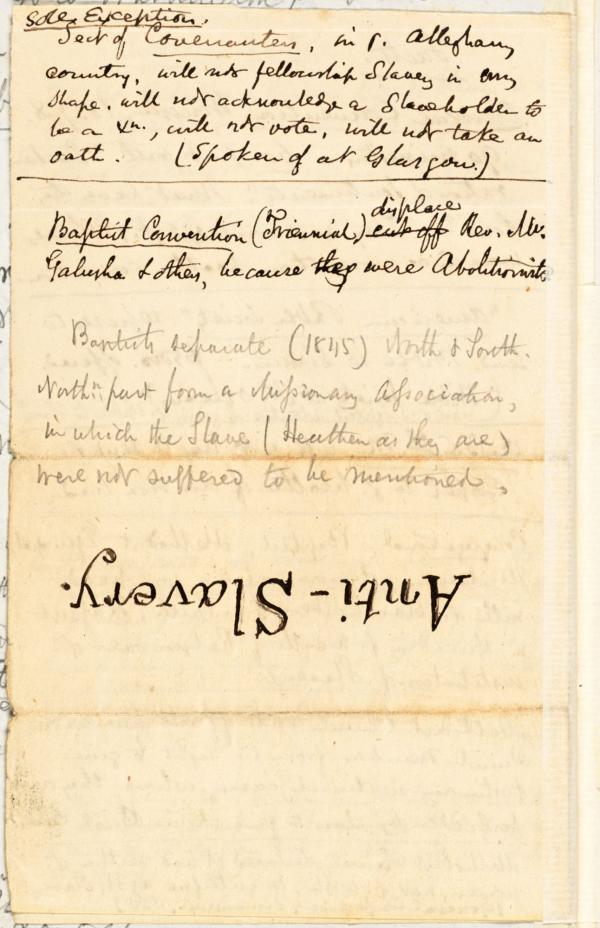 Sole Exception.
Sect of Covenanters, in p. Alleghany
country, will not fellowship Slavery in any
shape. will not acknowledge a Slaveholder to
be a Xn., will not vote, will not take an
oath. (Spoken of at Glasgow.)
displace
Baptist Convention (Triennial) cut off Rev. Mr.
Galusha & others, because they were Abolitionists
Baptists separate (1845) North & South.
North:n part form a Missionary Association,
in which the Slave (Heathen as they are)
were not suffered to be mentioned.
Anti-Slavery.